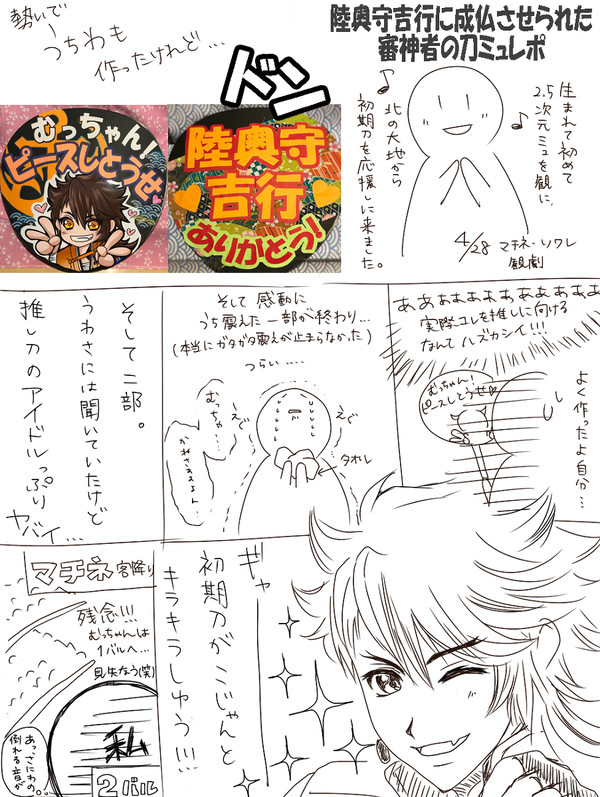 陸奥守吉行に成仏させられた
審神者の刀ミュレポ
生まれて初めて
2.5次元ミュを観に、
北の大地から
初期刀を応援しに来ました。
4/28 マチネ・ソワレ
観劇
勢いで
うちわも
作ったけれど…
ドン
むっちゃん!
ピースしとうせ
陸奥守
吉行
ありがとう!
あぁあぁぁぁぁぁぁぁぁぁ
実際コレを推しに向ける
なんてハズカシイ!!!
よく作ったよ自分…
むっちゃん!
ピースしとうせ
そして感動に
うち震えた一部が終わり…
(本当にガタガタ震えが止まらなかった)
つらい……
えぐ
えぐ
むっちゃ…
タオル
そして二部。
うわさには聞いていたけど
推し刀のアイドルっぷり
ヤバイ…
ギャ
初期刀がこじゃんと
キラキラしゅう!!!
マチネ客降り
残念!!!
むっちゃんは
1バルへ…
見失なう(笑)
私
あっ、さにわの
倒れる音が…
2バル